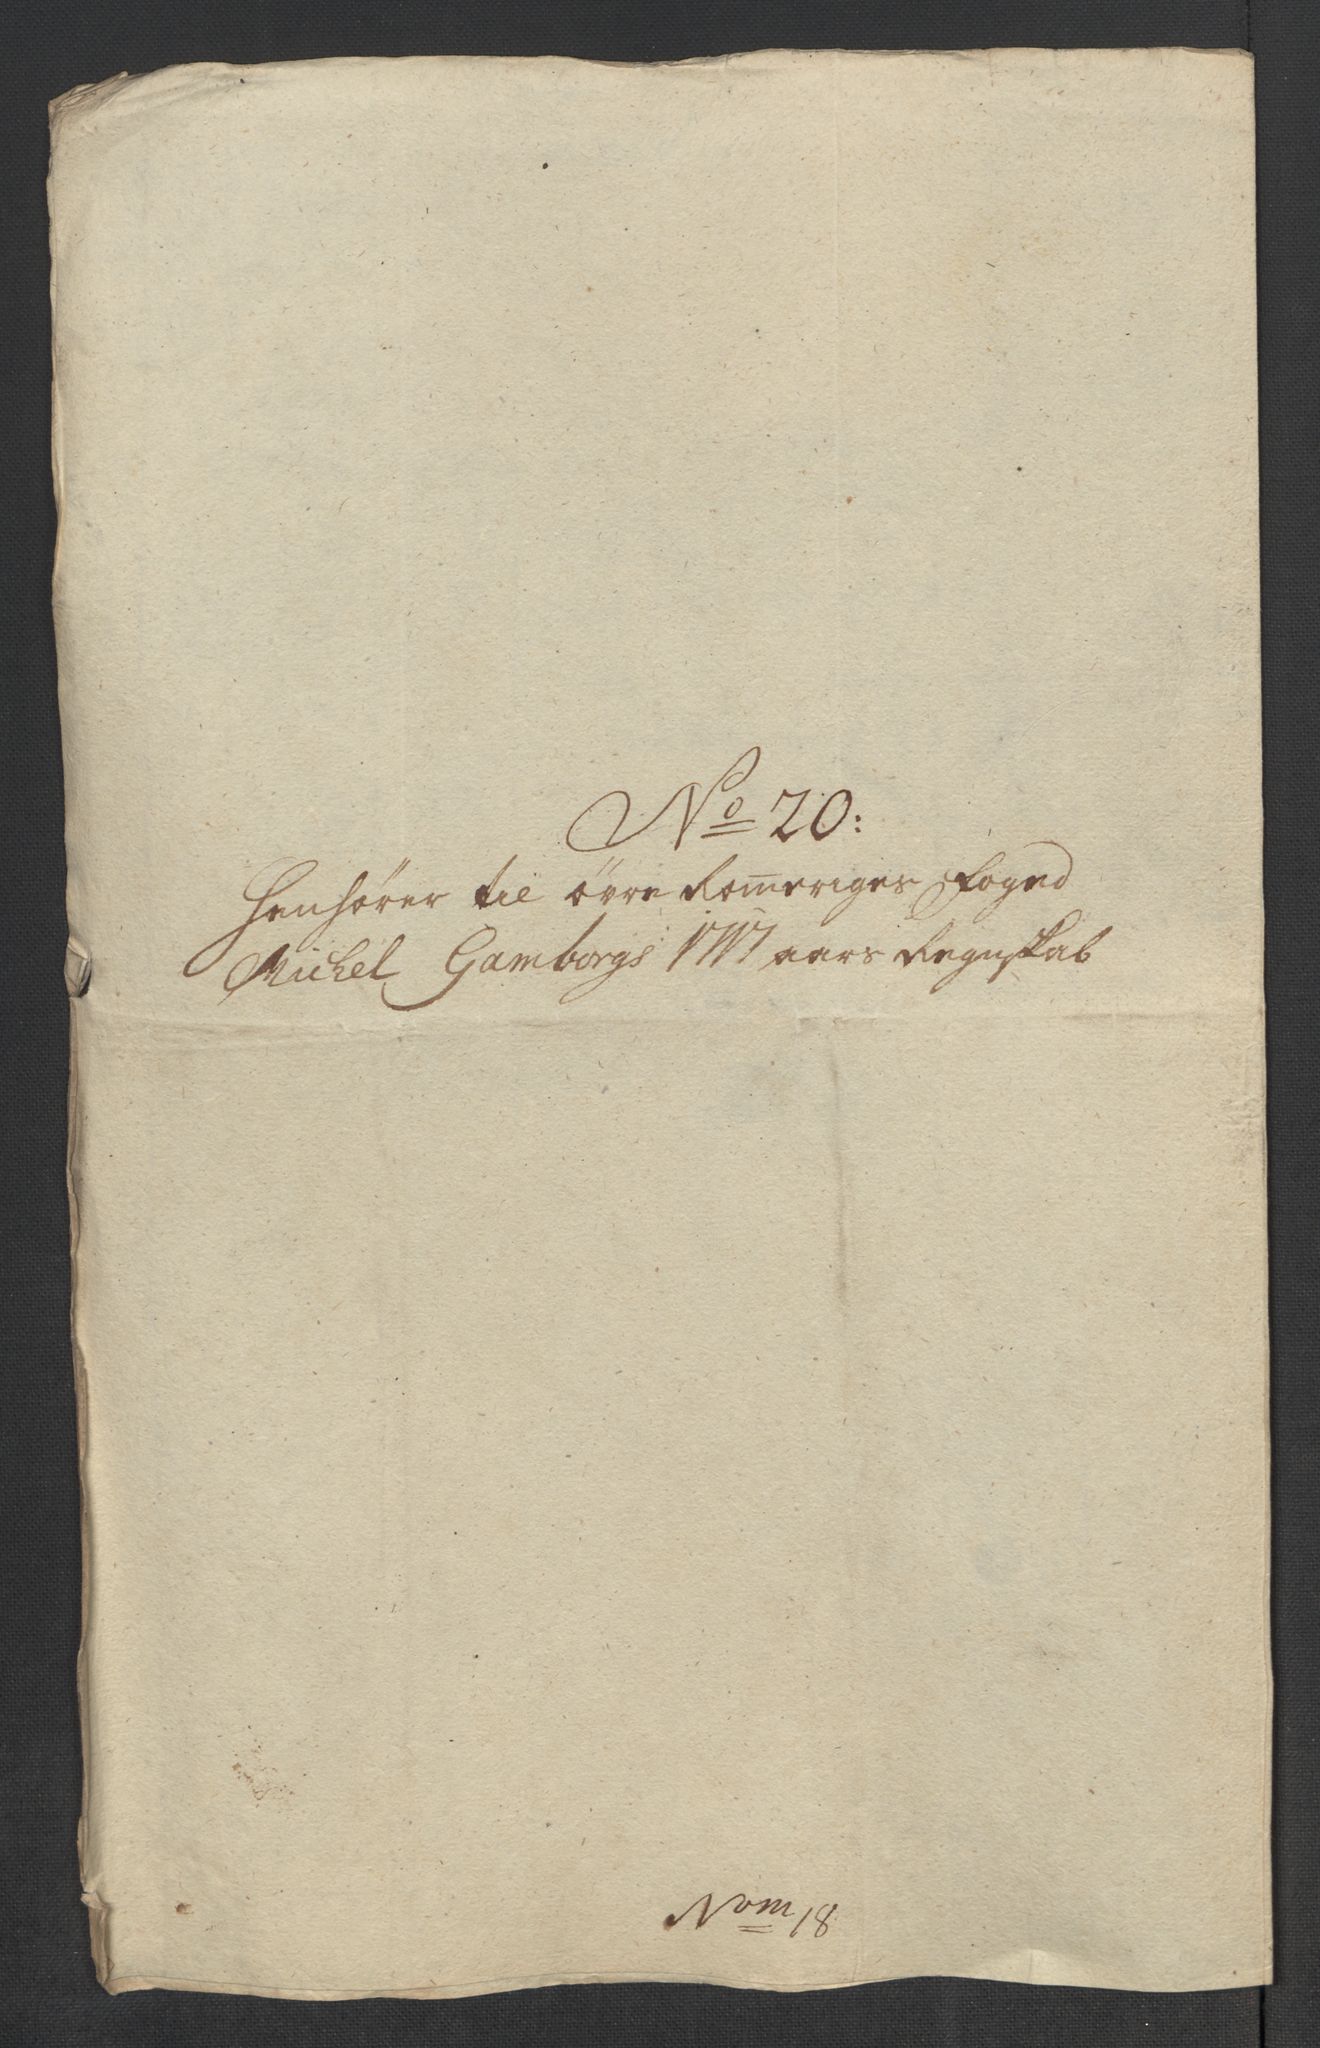 No 20:
Henhörer til övre Romeriges Foged
Michel Gamborgs 1717 aars Regnskab
Nom 18